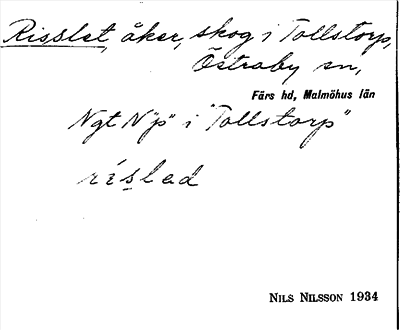 Risslet, åker, skog i Tollstorp,
Östraby sn,
Färs hd, Malmöhus län
Ngt N "p" i "Tollstorp"
ríslad
NILS NILSSON 1934